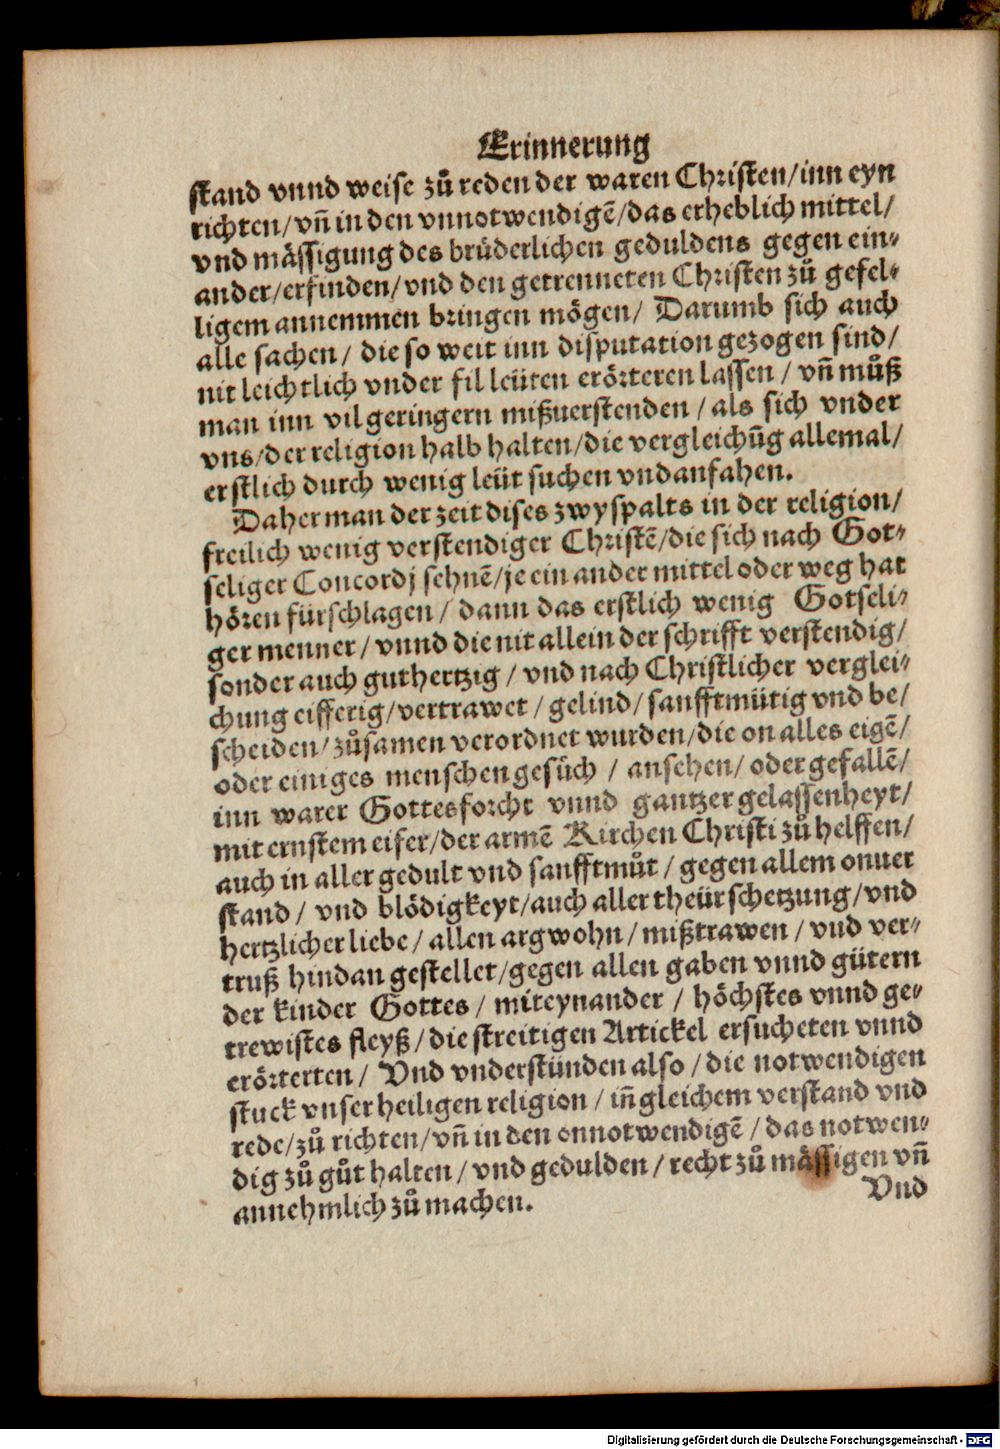 Erinnerung
stand vnnd weise zů reden der waren Christen/inn eyn
richten/vñ in den vnnotwendigẽ/das erheblich mittel/
vnd mässigung des brüderlichen geduldens gegen ein⸗
ander/erfinden/vnd den getrenneten Christen zů gefel⸗
ligem annemmen bringen mögen/ Darumb sich auch
alle sachen/ die so weit inn disputation gezogen sind/
nit leichtlich vnder fil leüten erörteren lassen/ vñ můß
man inn vil geringern mißuerstenden/ als sich vnder
vns/der religion halb halten/die vergleichũg allemal/
erstlich durch wenig leüt suchen vnd anfahen.
Daher man der zeit dises zwyspalts in der religion/
freilich wenig verstendiger Christẽ/die sich nach Got⸗
seliger Concordj sehnẽ/je ein ander mittel oder weg hat
hören fürschlagen/ dann das erstlich wenig Gotseli⸗
ger menner/ vnnd die nit allein der schrifft verstendig/
sonder auch guthertzig/ vnd nach Christlicher verglei⸗
chung eifferig/vertrawet/ gelind/ sanfftmütig vnd be/
scheiden/zůsamen verordnet wurden/die on alles eigẽ/
oder einiges menschen gesůch/ ansehen/ oder gefallẽ/
inn warer Gottesforcht vnnd gantzer gelassenheyt/
mit ernstem eifer/der armẽ Kirchen Christi zů helffen/
auch in aller gedult vnd sanfftmůt/ gegen allem onuer
stand/ vnd blödigkeyt/auch aller theürschetzung/vnd
hertzlicher liebe/ allen argwohn/ mißtrawen/ vnd ver⸗
truß hindan gestellet/gegen allen gaben vnnd gütern
der kinder Gottes/ miteynander/ höchstes vnnd ge⸗
trewistes fleyß/die streitigen Artickel ersucheten vnnd
erörterten/ Vnd vnderstünden also/die notwendigen
stuck vnser heiligen religion/ iñ gleichem verstand vnd
rede/zů richten/vñ in den onnotwendigẽ/ das notwen⸗
dig zů gůt halten/ vnd gedulden/ recht zů mässigen vñ
annehmlich zů machen.
Vnd
Digitalisierung gefördert durch die Deutsche Forschungsgemeinschaft - DFG